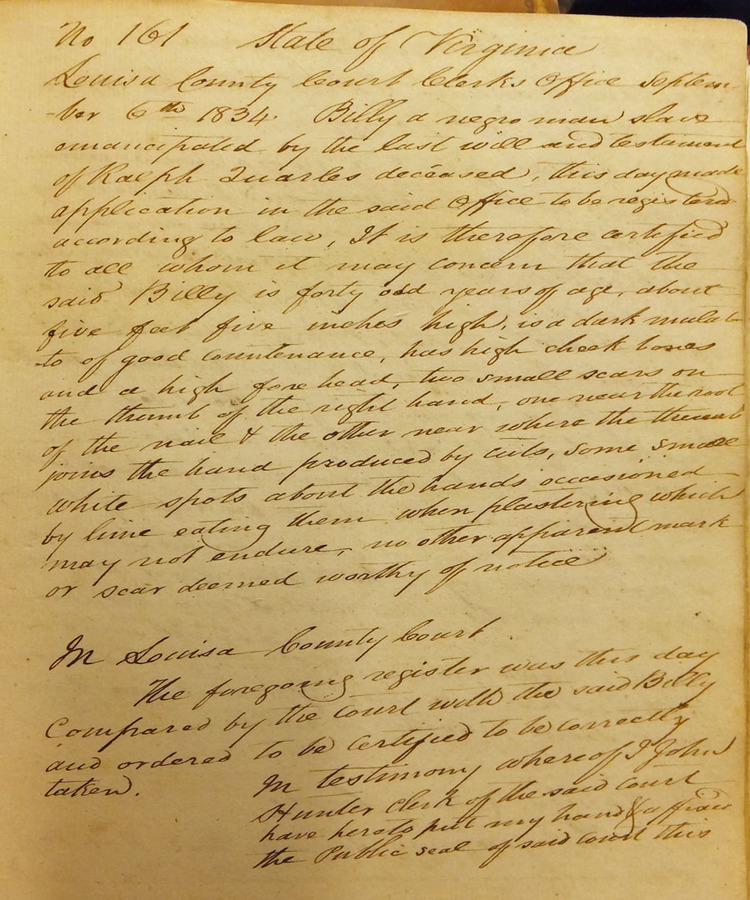 No 161 State of Virginia
Louisa County Court Clerks Office Septem-
-ber 6th 1834. Billy a negro man slave
emancipated by the last will and testament
of Ralph Quarles deceased, this day made
application in the said Office to be registered
according to law, It is therefore certified
to all whom it may concern that the
said Billy is forty odd years of age, about
five feet five inches high, is a dark mulat-
to of good countenance, has high cheek bones
and a high fore head, two small scars on
the thumb of the right hand, one near the root
of the nail & the other near where the thumb
joins the hand produced by cuts, some small
white spots about the hands occasioned
by lime eating them when plastering which
may not endure, no other apparent mark
or scar deemed worthy of notice
In Louisa County Court
The foregoing register was this day
Compared by the Court with the said Billy
and ordered to be certified to be correctly
taken.
In testimony whereof I John
Hunter Clerk of the said Court
have hereto put my hand & affixed
the Public seal of said Court this